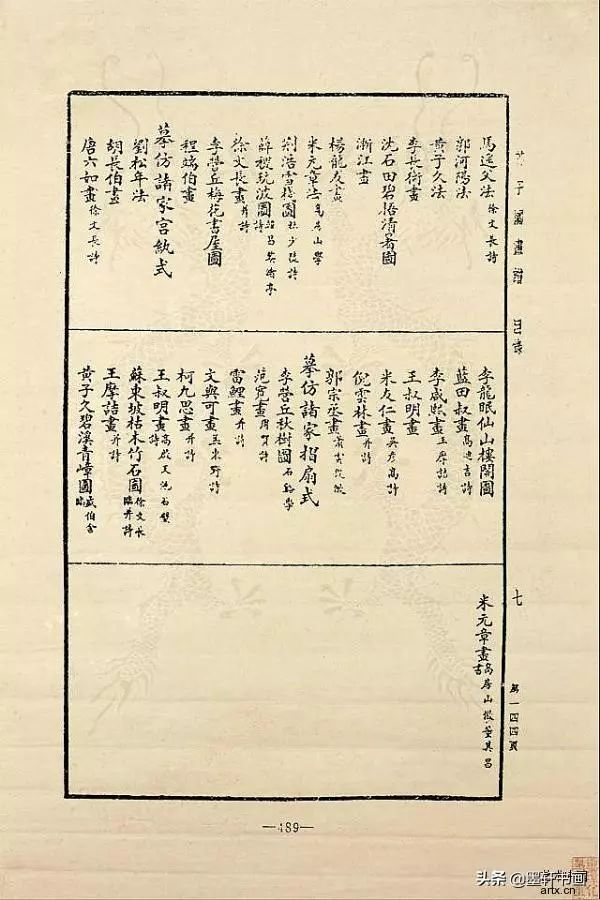 芥子園畫譜 目錄
馬遙父法 徐文長詩
郭河陽法
黃子久法
李長衡畫
沈石田碧梧清暑圖
漸江畫
楊龍友畫
米元章法 高房山學
荊浩雪棧圖 杜少陵詩
薛稷玩波圖 詩
徐文長畫 并詩
李營丘梅花書屋圖
程端伯畫
摹仿諸家宮紈式
劉松年法
胡長伯畫
唐六如畫 徐文長詩
李龍眠仙山樓閣圖
藍田叔畫 高迪吉詩
李咸熙畫 王摩詰詩
王叔明畫
米友仁畫 吳彥高詩
倪雲林畫 并詩
郭宗丞畫
摹仿諸家摺扇式
李營丘秋樹圖 石谿學
范寬畫 周賀詩
雷鯉畫 并詩
文與可畫 孟東野詩
柯九思畫 并詩
王叔明畫 詩
蘇東坡枯木竹石圖 徐文長臨并詩
王摩詰畫 并詩
黃子久碧溪青嶂圖 盛伯含臨
米元章畫 高房山 董其昌書
七
第一四四頁
—489—
头条 @墨轩书画
artx.cn